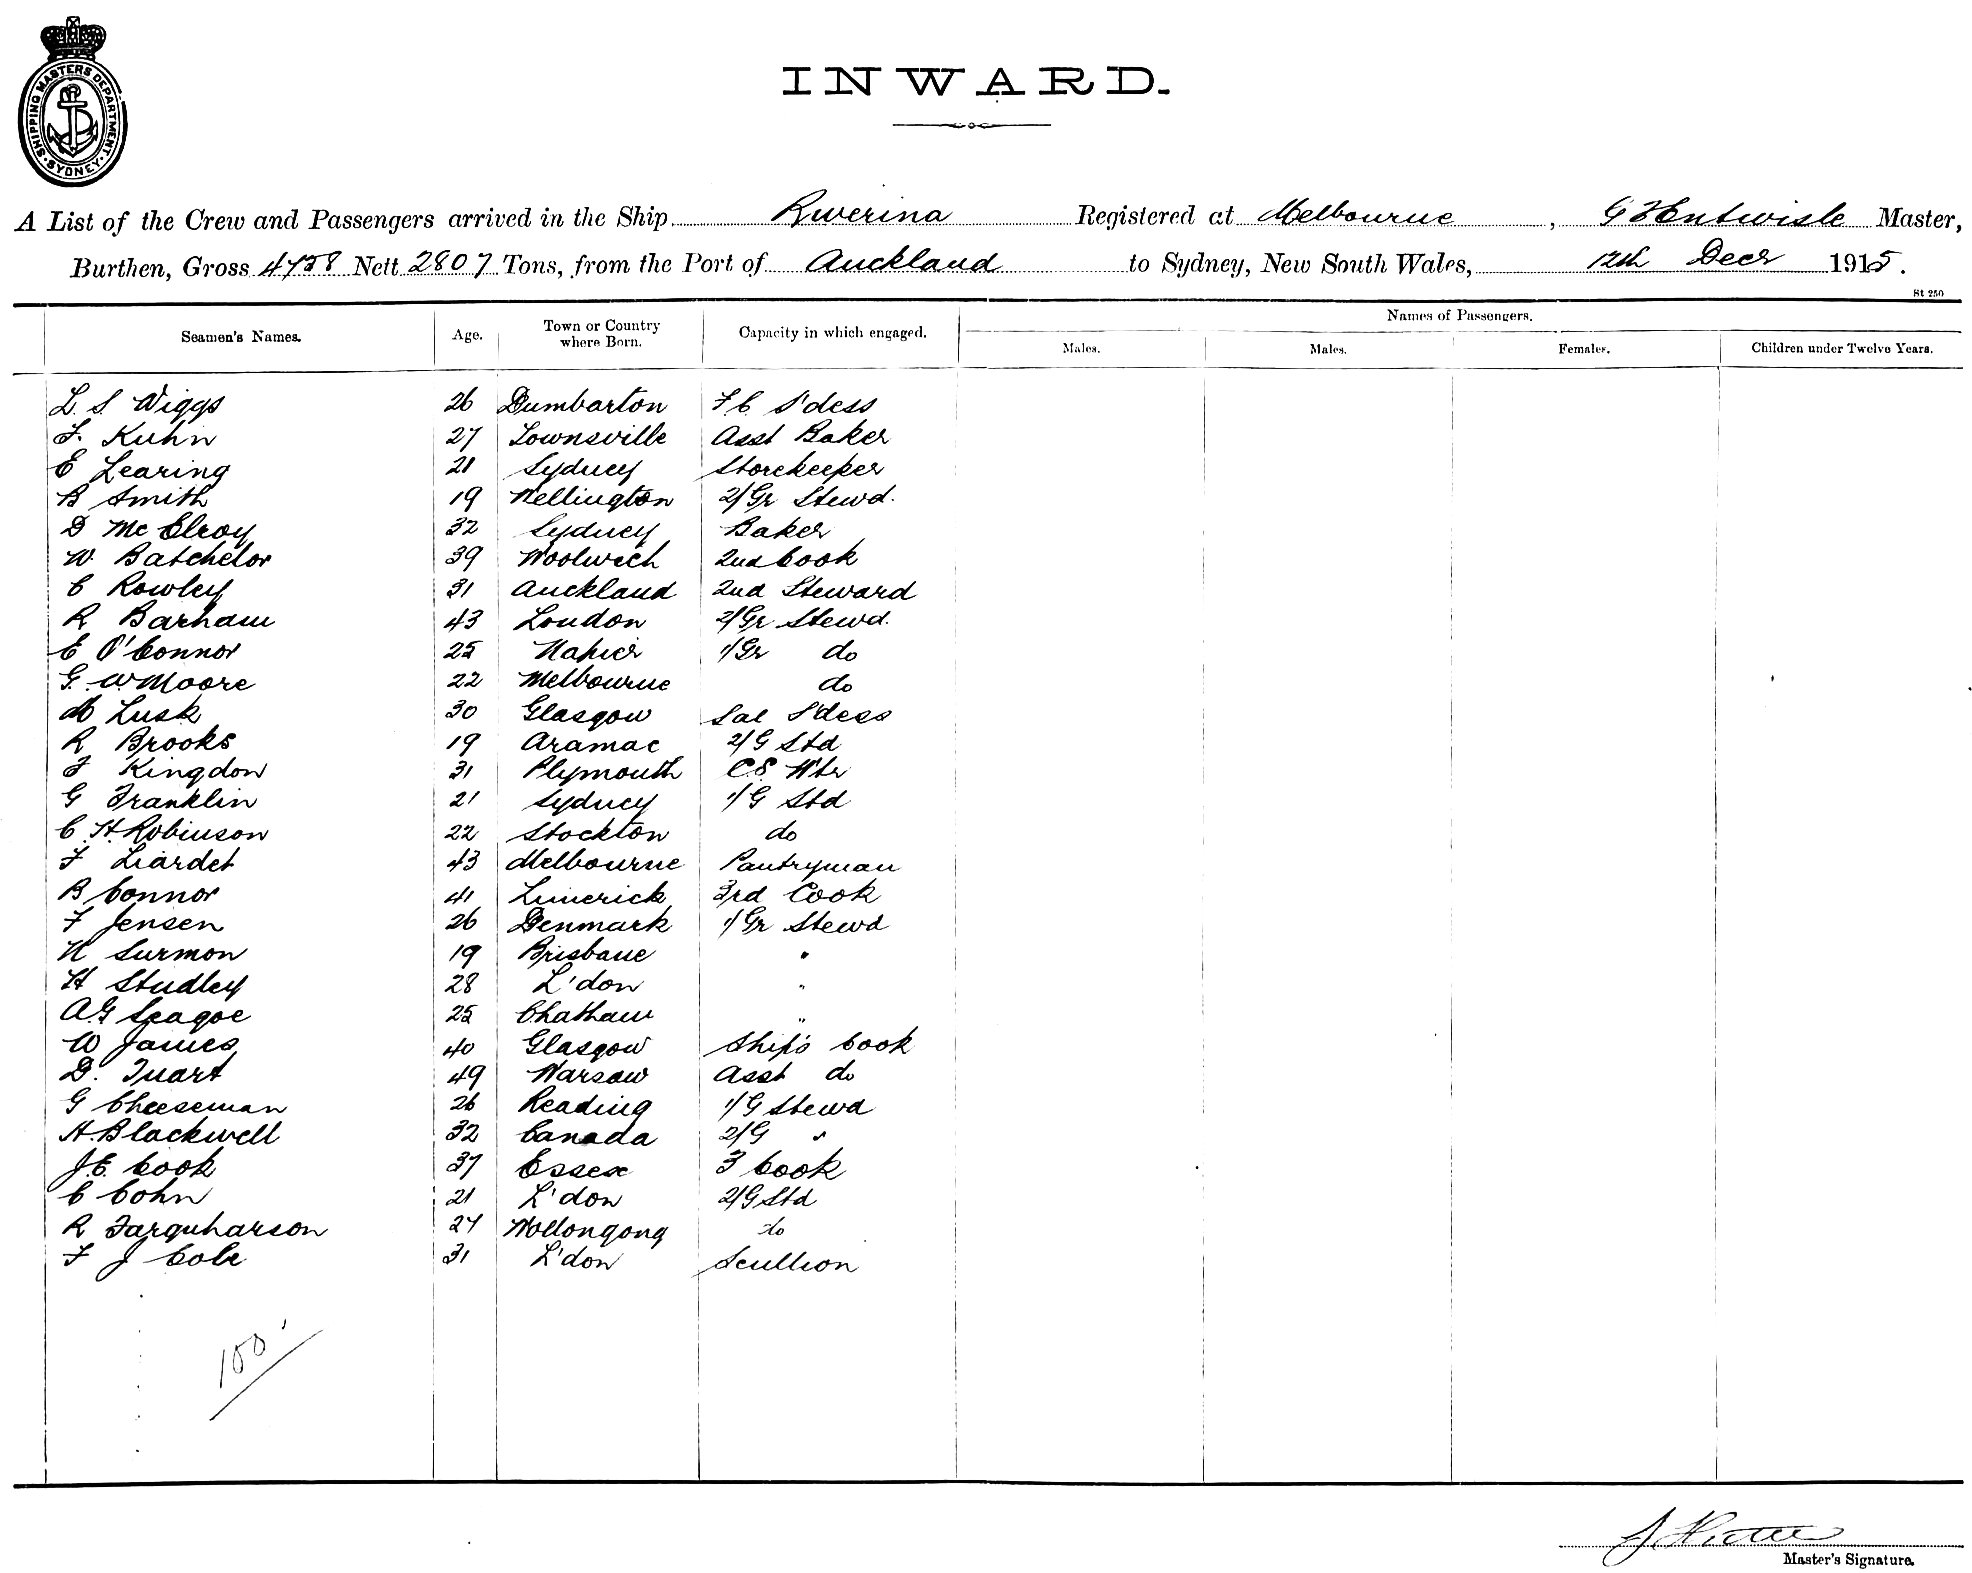 SHIPPING MASTERS DEPARTMENT. SYDNEY
INWARD.
A List of the Crew and Passengers arrived in the Ship Riverina Registered at Melbourne, G Entwisle Master,
Burthen, Gross 4758 Nett 2807 Tons, from the Port of Auckland to Sydney, New South Wales, 12th Decr 1915.
St 250
Seamen's Names. Age. Town or Country where Born. Capacity in which engaged. Names of Passengers.
Males. Males. Females. Children under Twelve Years.
L. S. Wiggs 26 Dumbarton F.C. S'dess
F. Kuhn 27 Townsville Asst Baker
E Learing 21 Sydney Storekeeper
B Smith 19 Wellington 2/Gr Stewd.
D Mc Elroy 32 Sydney Baker
W Batchelor 39 Woolwich 2nd Cook
C Rowley 31 Auckland 2nd Steward
R Barham 43 London 2/Gr Stewd.
E O'Connor 25 Napier 1/Gr do
G. W. Moore 22 Melbourne do
M Lusk 30 Glasgow Sal S'dess
R Brooks 19 Aramac 2/G Std
F Kingdon 31 Plymouth C.S. Wtr
G Franklin 21 Sydney 1/G Std
C. H. Robinson 22 Stockton do
F Liardet 43 Melbourne Pantryman
B Connor 41 Limerick 3rd Cook
F Jensen 26 Denmark 1/Gr Stewd
H Surmon 19 Brisbane "
H Studley 28 L'don "
A.G Seagoe 25 Chatham "
W James 40 Glasgow Ship's Cook
D. Tuart 49 Warsaw Asst do
G Cheeseman 26 Reading 1/G Stewd
H. Blackwell 32 Canada 2/G "
J.E. Cook 37 Essex 3 Cook
C Cohn 21 L'don 2/G Std
R Farquharson 27 Wollongong do
F J Cole 31 L'don Scullion
100
Master's Signature.